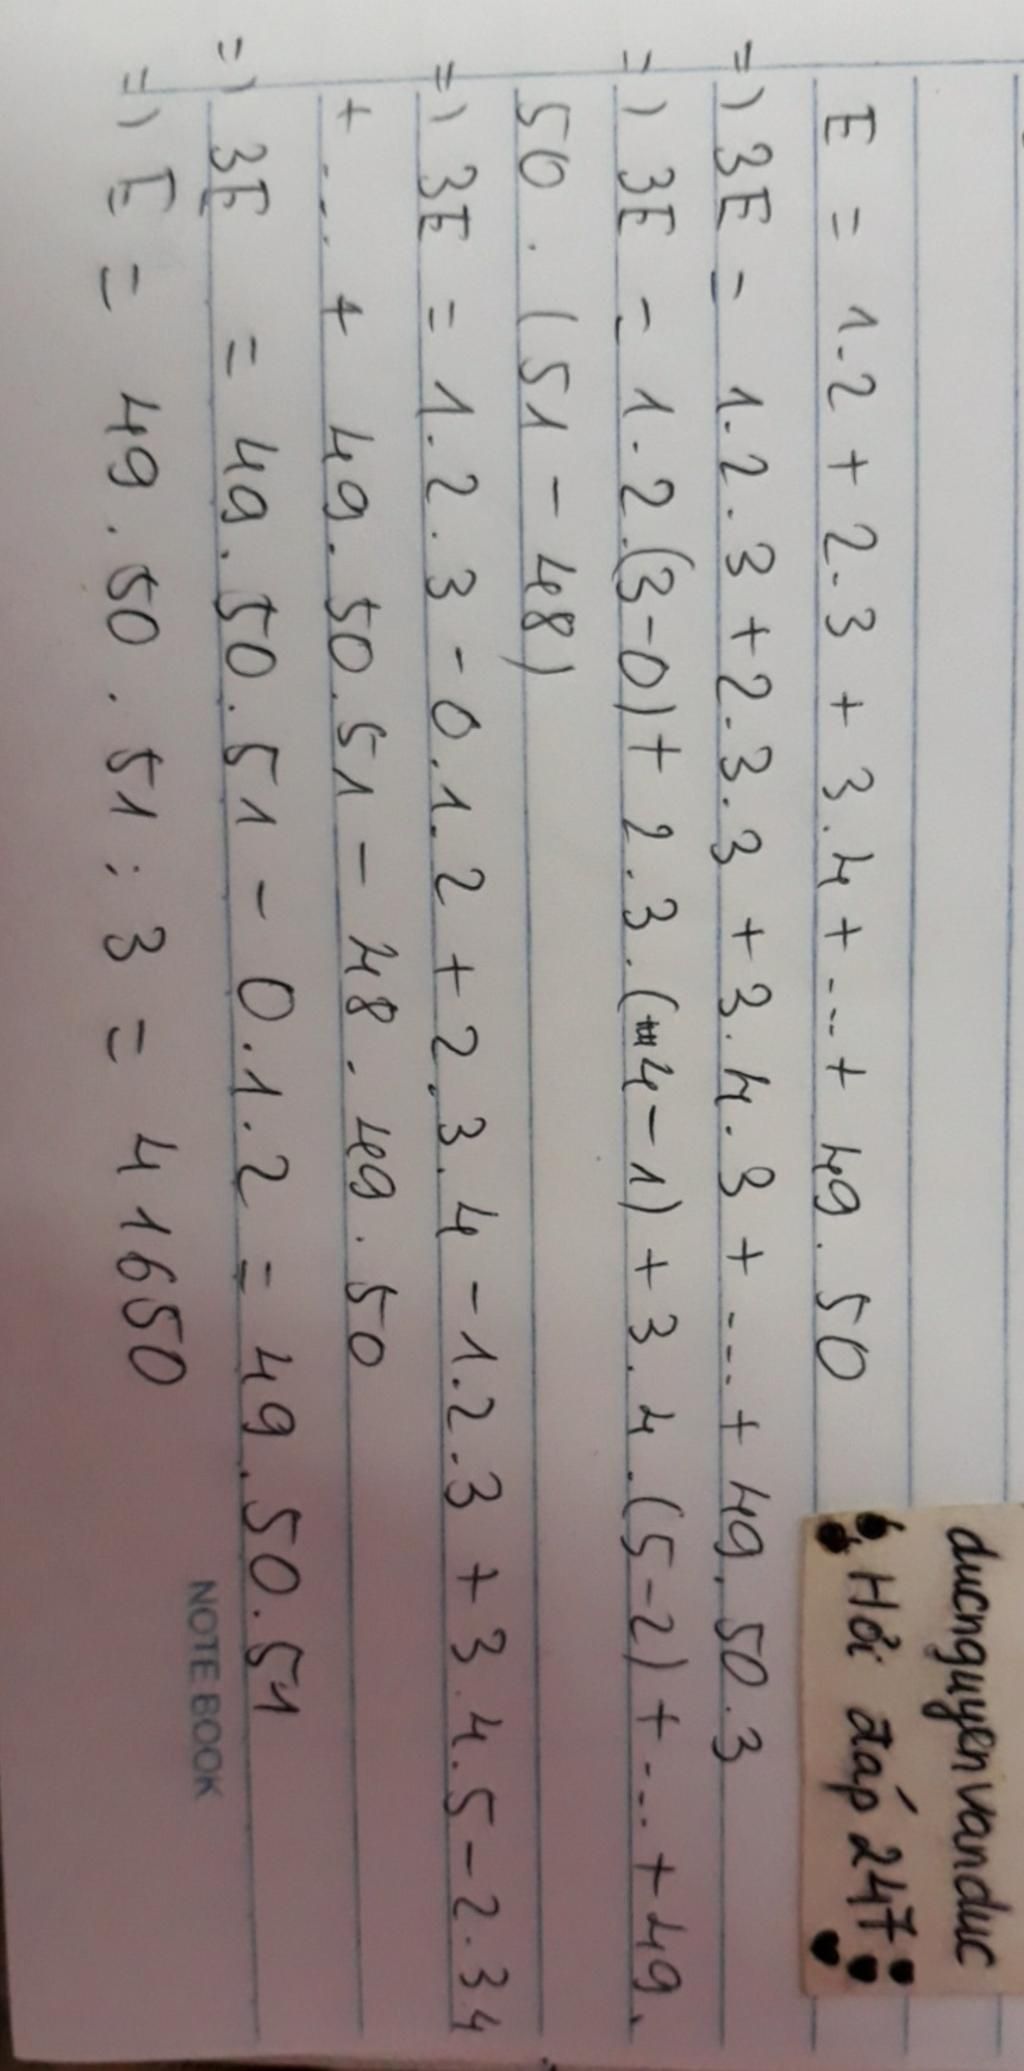 ducnguyenvanduc
Hỏi đáp 247
E = 1.2 + 2.3 + 3.4 + ... + 49.50
=) 3E = 1.2.3 + 2.3.3 + 3.4.3 + ... + 49.50.3
=) 3E = 1.2.(3-0) + 2.3.(4-1) + 3.4.(5-2) + ... + 49.
50.(51 - 48)
=) 3E = 1.2.3 - 0.1.2 + 2.3.4 - 1.2.3 + 3.4.5 - 2.34
+ ... + 49.50.51 - 48.49.50
=) 3E = 49.50.51 - 0.1.2 = 49.50.51
=) E = 49.50.51 : 3 = 41650
NOTE BOOK